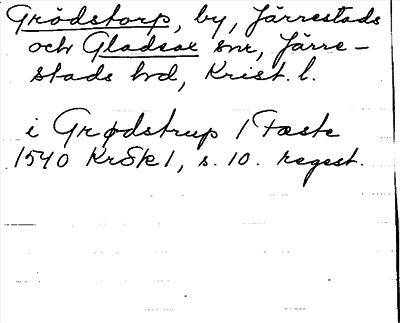 Grödstorp, by, Järrestads
och Gladsax snr, Järre-
stads hd, Krist. l.
i Grødstrup 1 Fæste
1540 KrSk 1, s. 10. regest.